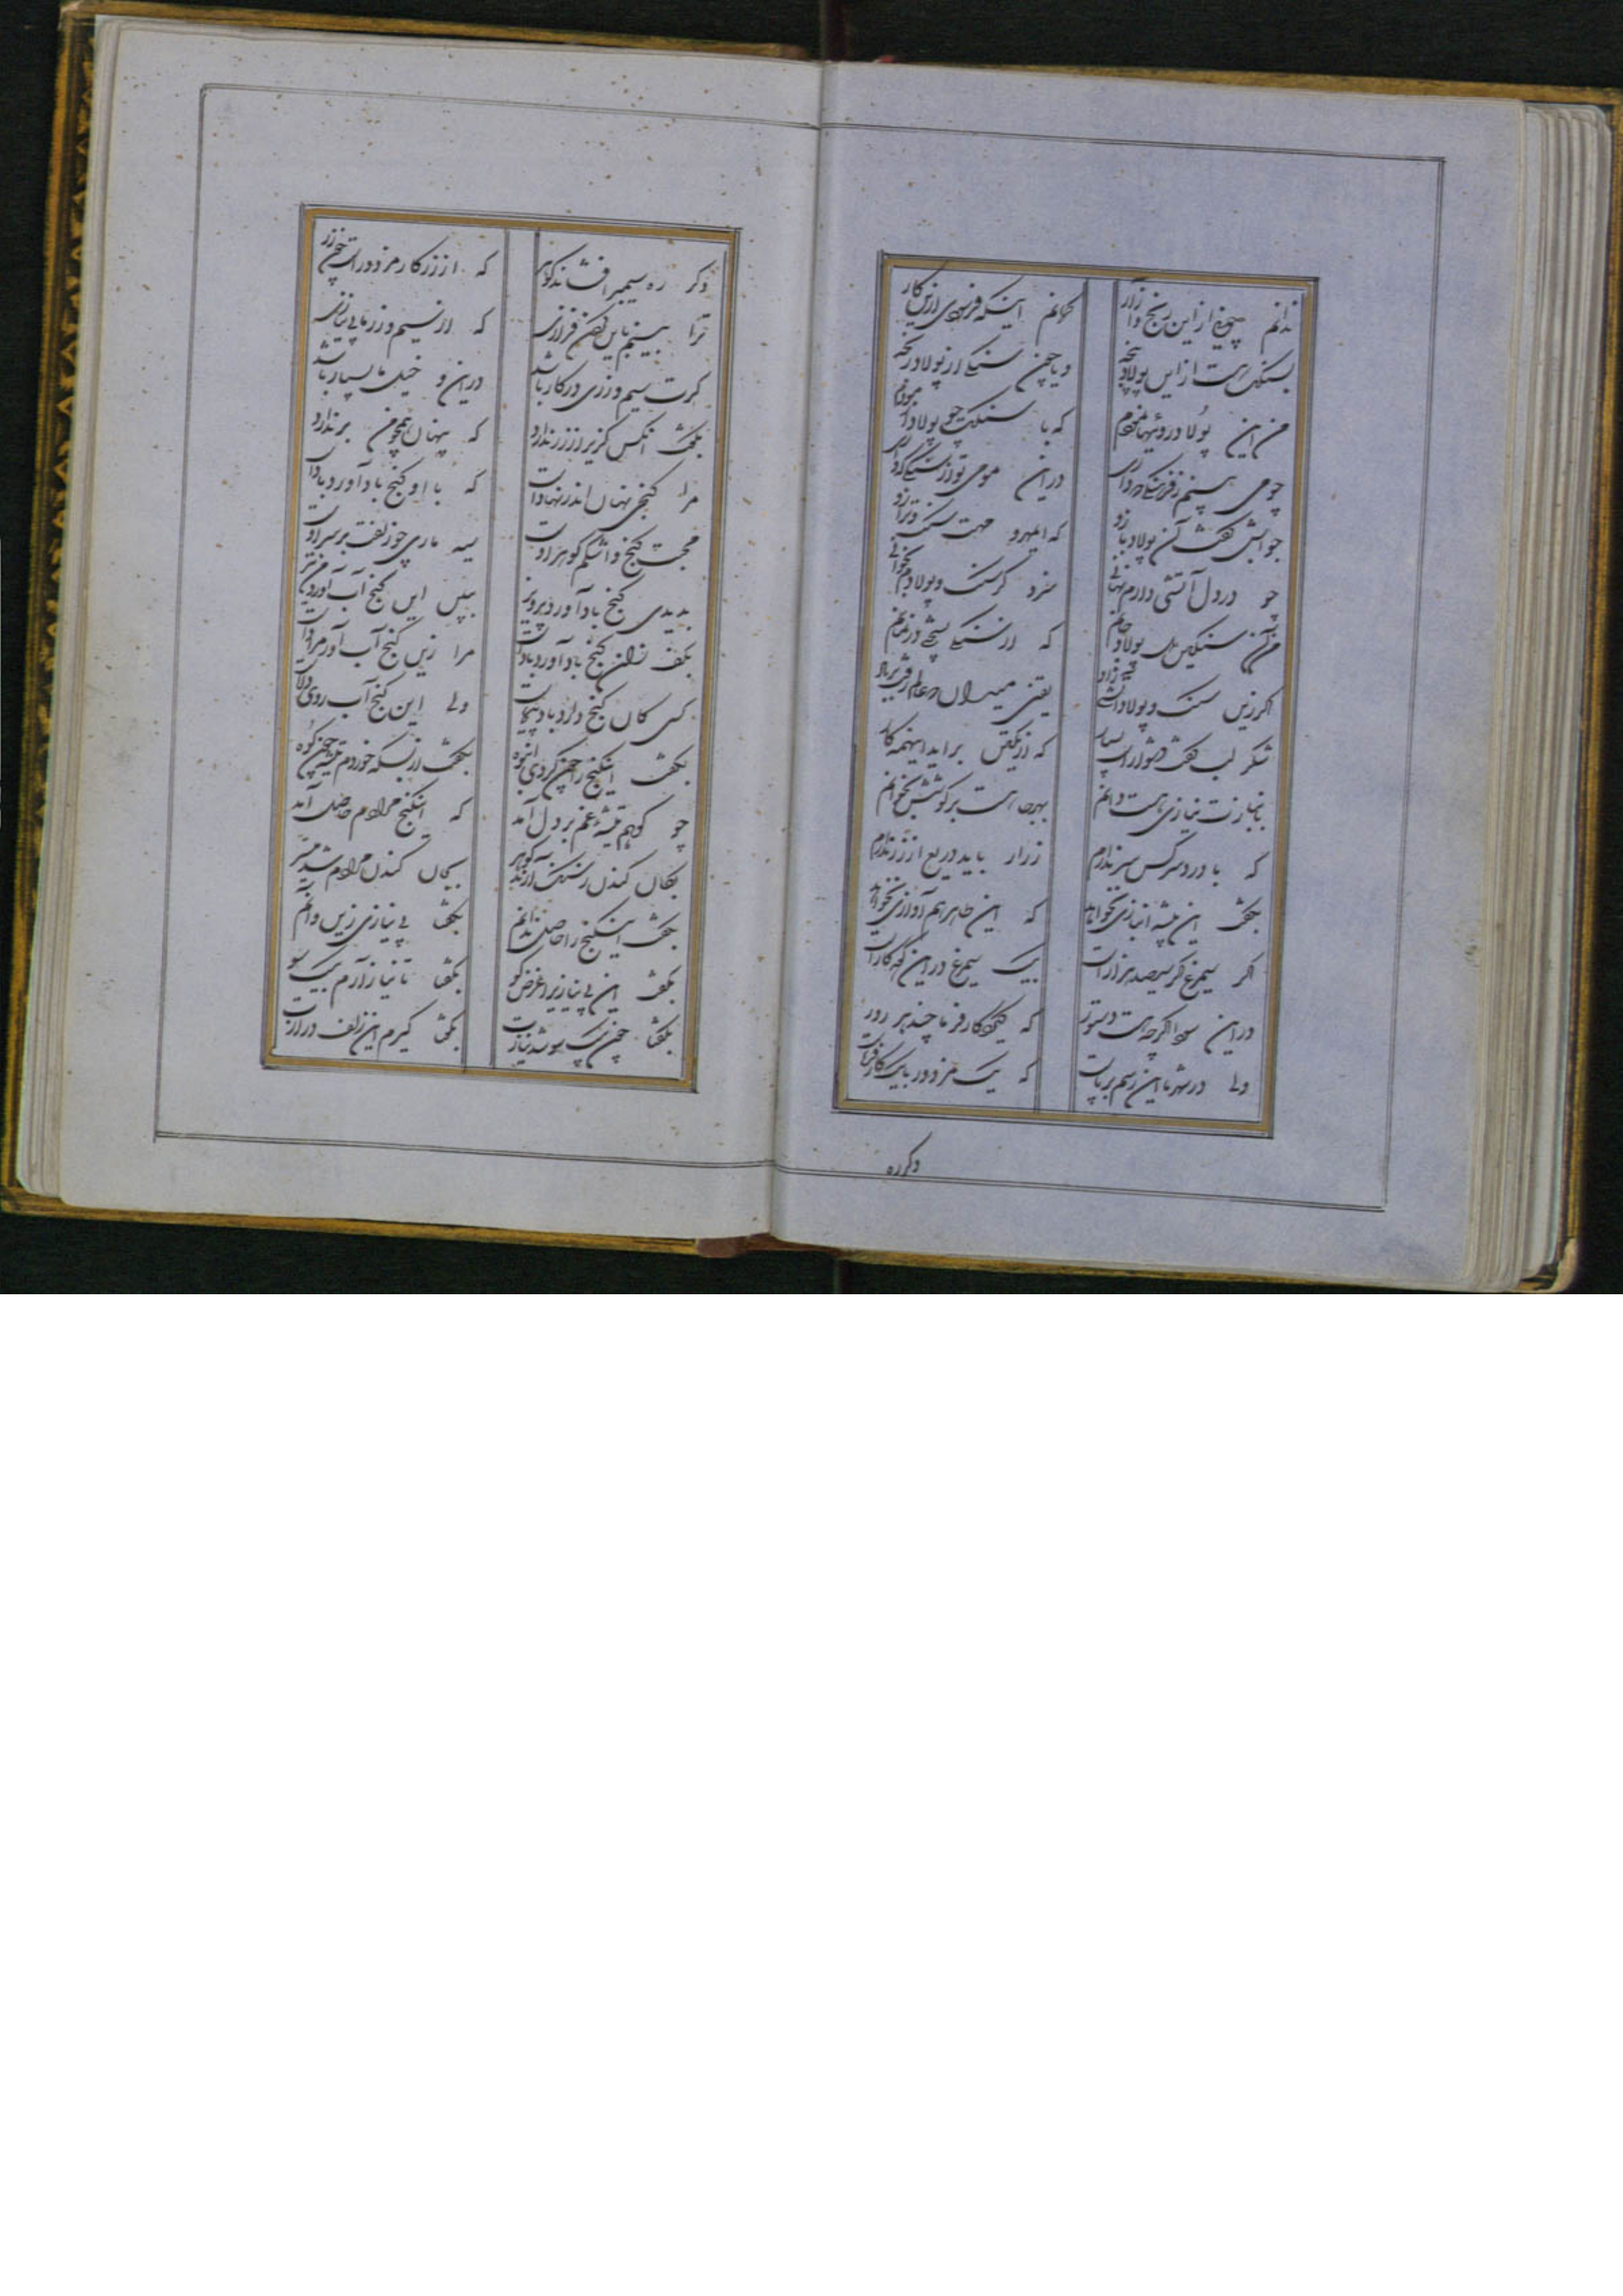 ندانم چونی از این رنج و آزار نخوانم اینکه فرسودی ازین کار
بسنگ است از این پولاد پنجه و یا چون سنگی از پولاد رنجه
من این پولاد روئیها نمودم که با سنگت چو پولاد آزمودم
چو می بینم ز فرسنگی که داری درین مومی تو از سنگی که داری
جوابش گفت آن پولاد بازو که ای مهرو مهت سنگ ترازو
چو در دل آتشی دارم نهانی سزد گر سنگ و پولادم بخوانی
من آن سنگین دل پولاد جانم که از سنگی بسختی در نمانم
اگر زین سنگ و پولاد آتشی زاد یقین میدان که عالم رفت بر باد
شکر لب گفت دشوار است بسیار که از یکتن برآید اینهمه کار
بانبازت نیازی هست دانم بهر جا هست برکوشش بخوانم
که با درد سر کس سر ندارم ز زر ار باید دریغ از زر ندارم
بگفت این پیشه انبازی نخواهد که این طایر هم آوازی نخواهد
اگر سیمرغ گر سیصد هزار است بیک سیمرغ در این که کار است
در این سودا اگرچه هست دستور که یک کارفرما چند مزدور
ولی در شهر ما این رسم برپاست که یک مزدور با یک کارفرماست
دگر ره
دگر ره سیمبر افشاند گوهر که از زر کار مزدور است چون زر
ترا بینم باین گردن فرازی که از سیم و زر ما بی نیازی
گرت سیم و زری در کار باشد در این و خیل ما بسیار باشد
بگفت آنکس گزیر از زر ندارد که پنهان همچو من بر ندارد
مرا گنجی نهان اندر نهاد است که با او گنج باد آورد باد است
محبت گنج و اشکم گوهر اوست سیه ماری چو زلفت بر سر اوست
بدیدی گنج باد آورد پرویز ببین این گنج آب آورد من نیز
بکف زان گنج باد آورد باد است مرا زین گنج آب آور مراد است
کسی کان گنج دارد باد پیماست ولی این گنج آب روی دلهاست
بگفت این گنج را چون کردی انبوه بگفت از بسکه خوردم تیشه چون کوه
چو کوهم تیشهٔ غم بر دل آمد که این گنج مرادم حاصل آمد
بکان کندن ز سنگ آرند گوهر بجان کندن مرادم شد میسر
بگفت این گنج را حاصل ندانم بگفتا بی نیازی زین و آنم
بگفت این بی نیازی را غرض کو بگفتا تا نیاز آرم بیک سو
بگفتا چون بیک سو شد نیازت بگفتا گیرم این زلف درازت